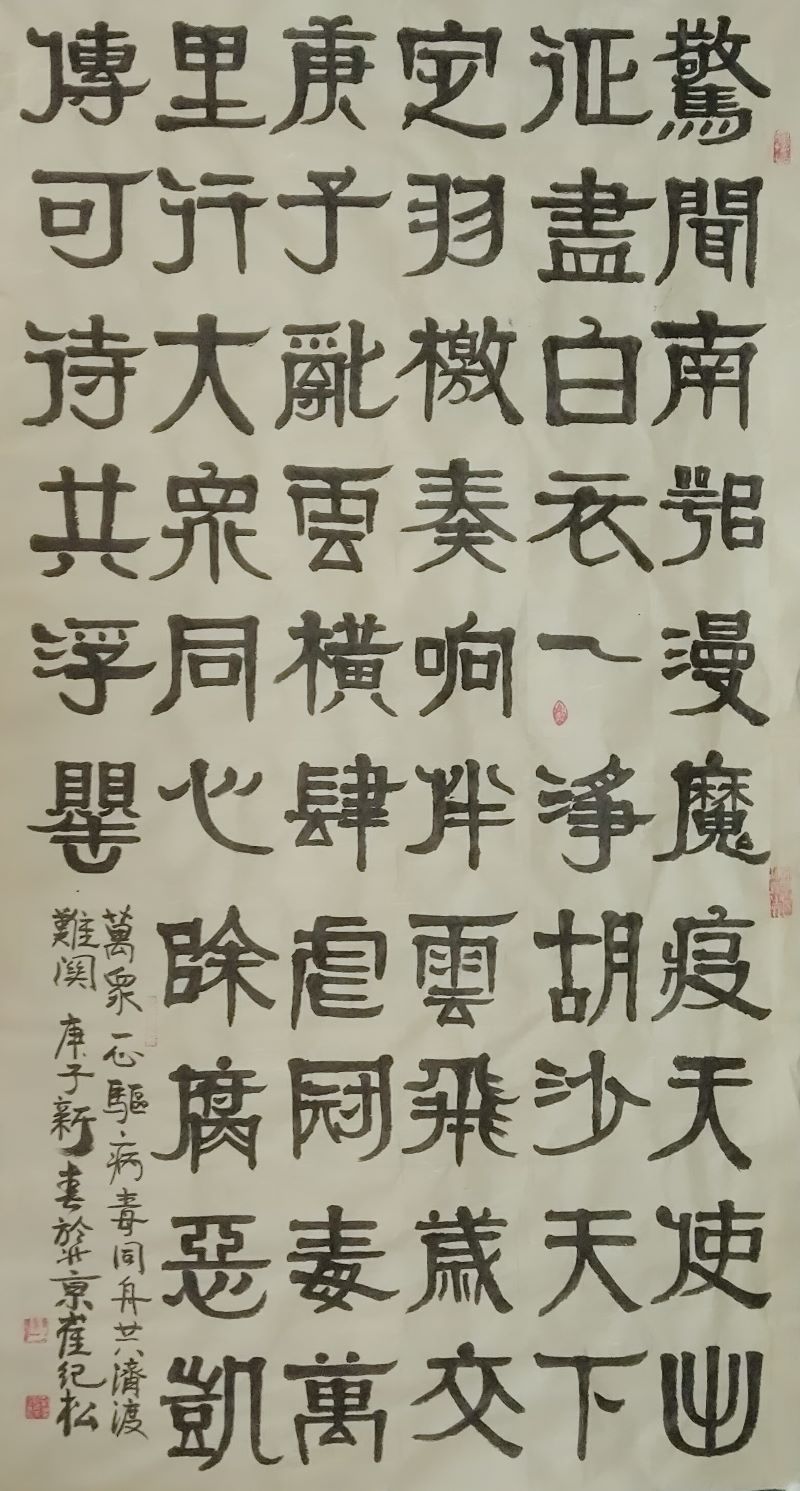 驚聞南鄂漫魔疫天使出
征盡白衣一淨胡沙天下
定羽檄奏响伴雲飛歲交
庚子亂雲橫肆虐冠毒萬
里行大眾同心除腐惡凱
傳可待共浮罌
萬眾一心驅病毒同舟共濟渡
難関 庚子新春於北京崔纪松